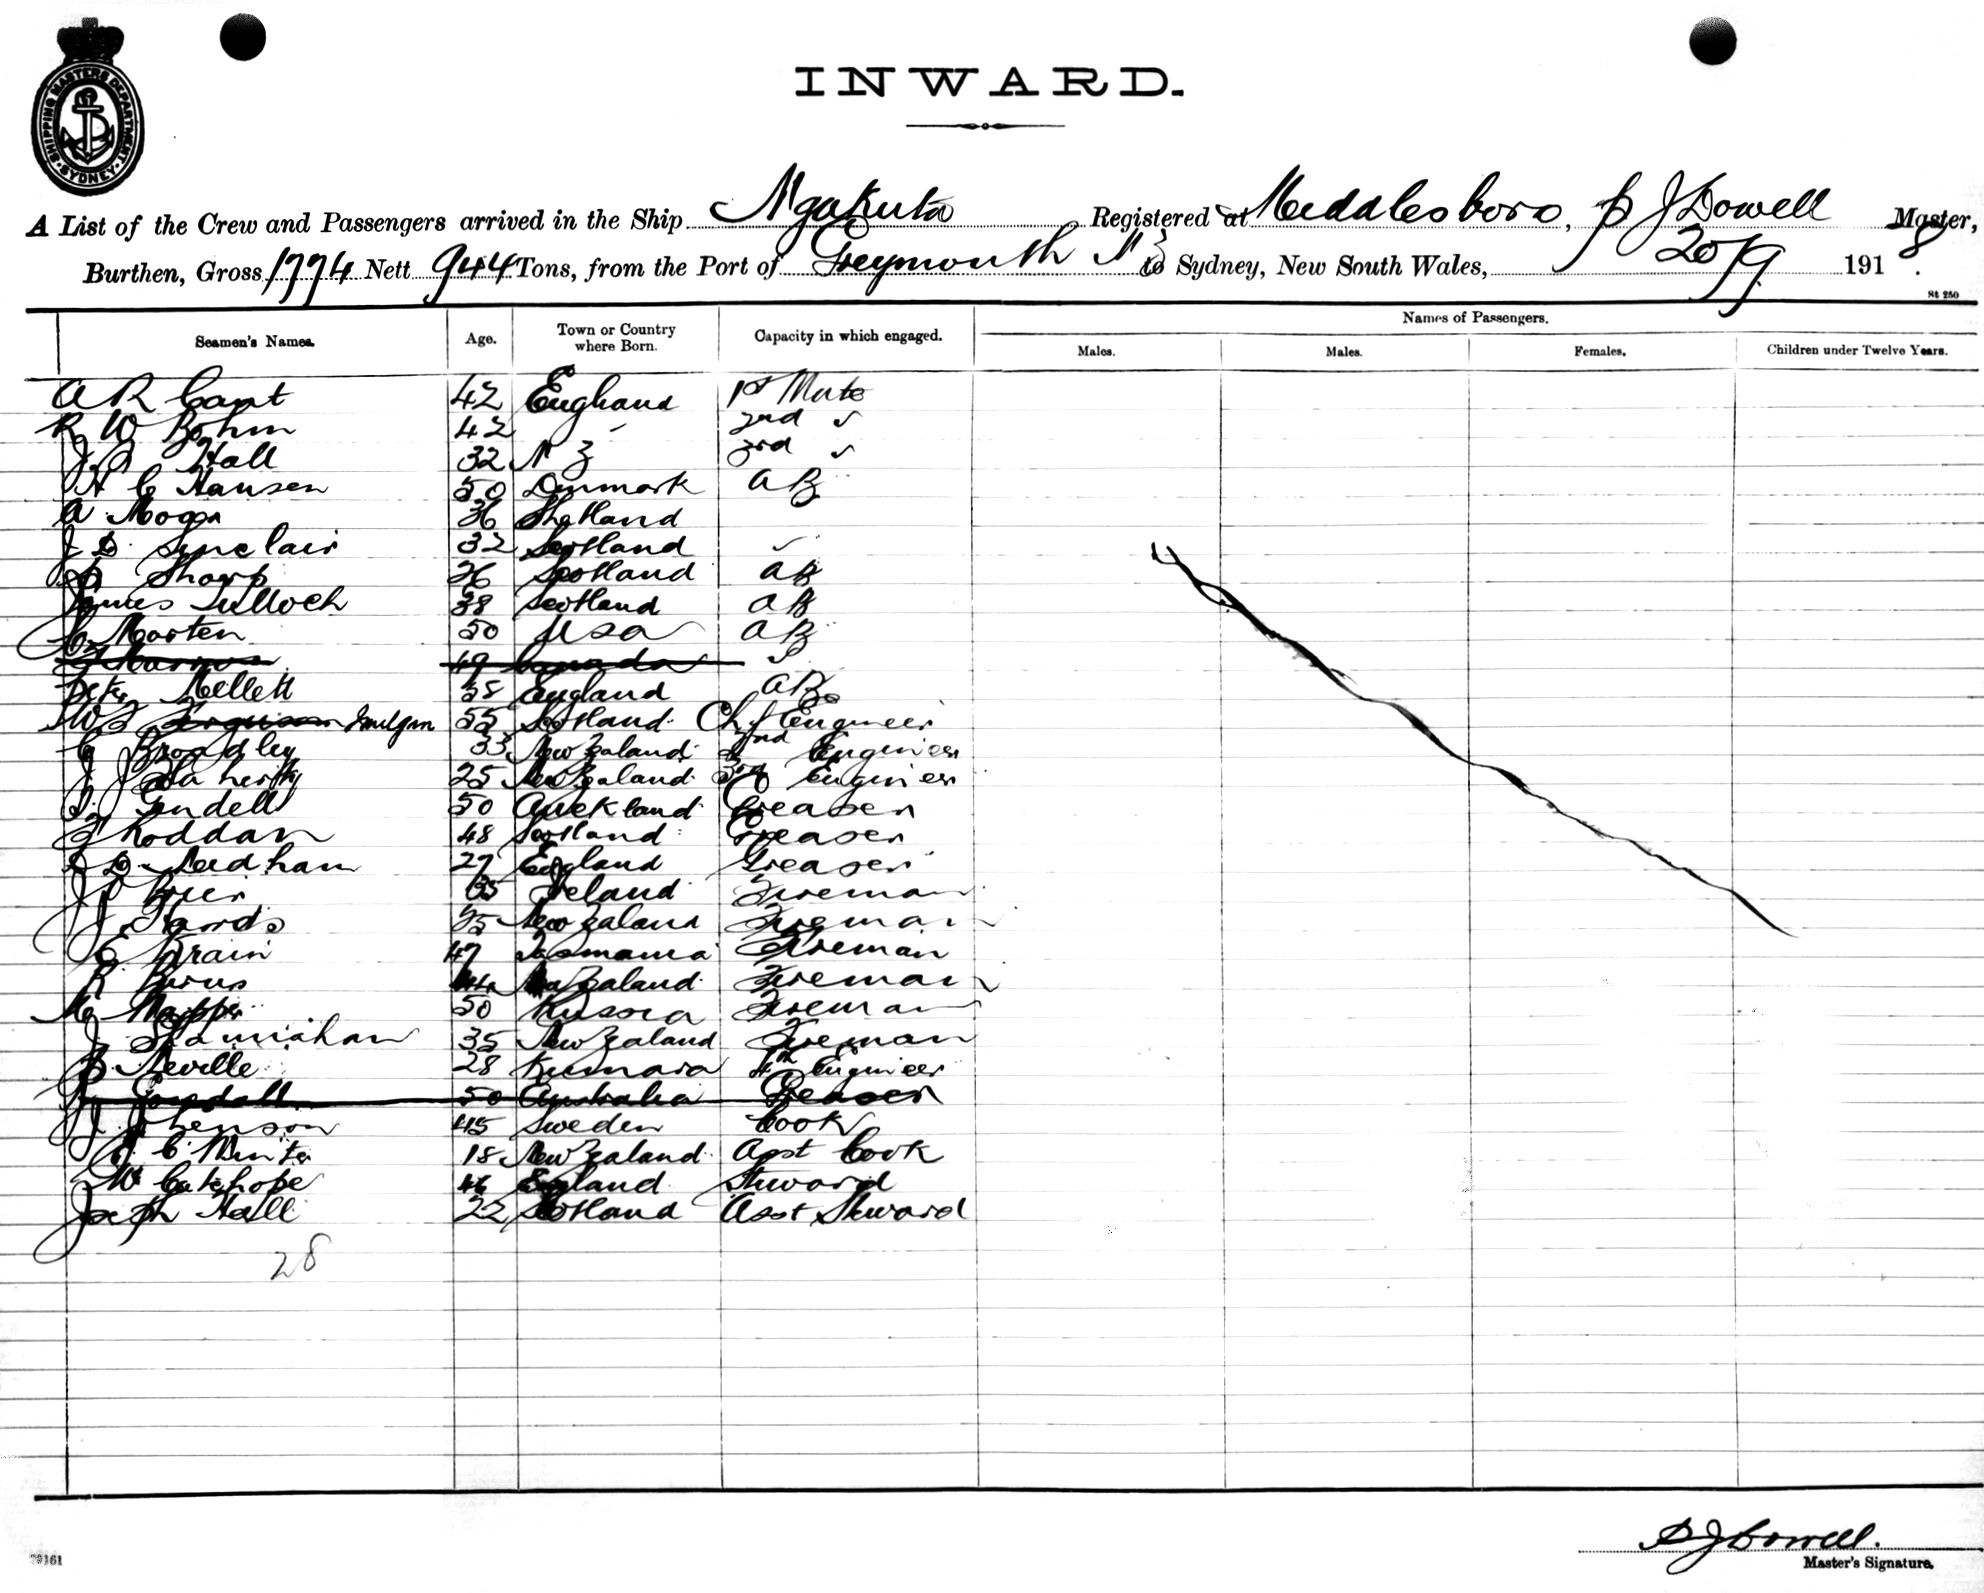 SHIPPING MASTERS DEPARTMENT SYDNEY
INWARD.
A List of the Crew and Passengers arrived in the Ship Ngakuta Registered at Meddlesboro, J Dowell Master,
Burthen, Gross 1774 Nett 944 Tons, from the Port of Greymouth NZ to Sydney, New South Wales, 20/9 1918.
St 250
Seamen's Names. Age. Town or Country where Born. Capacity in which engaged. Names of Passengers.
Males. Males. Females. Children under Twelve Years.
A R Cant 42 England 1st Mate
R W Bohm 42 " 2nd ✓
Hall 32 N Z 3rd ✓
H C Hansen 50 Denmark AB
A 36 Shetland
J D Sinclair 32 Scotland ✓
Sharp 26 Scotland AB
James Tulloch 38 Scotland AB
Morten 50 USA AB
49 Canada ✓
Peter Mellett 58 England AB
W Ferguson 55 Scotland Chf Engineer
G Broadley 33 New Zealand 2nd Engineer
J Flaherty 25 New Zealand 3rd Engineer
50 Auckland Greaser
Roddan 48 Scotland Greaser
27 England Greaser
J 65 Ireland Fireman
J New Zealand Fireman
E Brain 47 Tasmania Fireman
R Burns New Zealand Fireman
M 50 Russia Fireman
J 35 New Zealand Fireman
Neville 28 Kumara 4th Engineer
50 Australia Greaser
J 45 Sweden Cook
C Minter 18 New Zealand Asst Cook
W 46 England Steward
Joseph Hall 22 Scotland Asst Steward
28
J Dowell.
Master's Signature.
79161